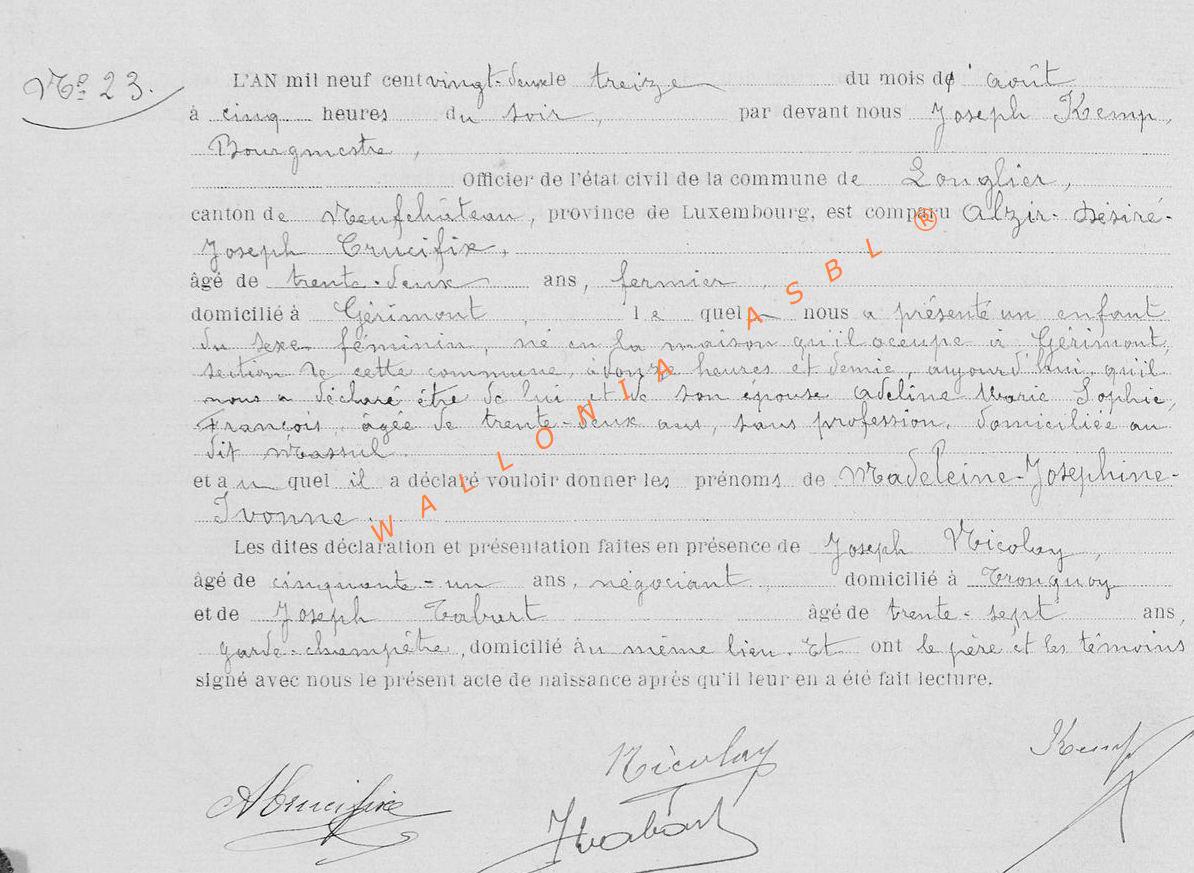 Nº 23.
L'AN mil neuf cent vingt-deux le treize du mois d' août
à cinq heures du soir, par devant nous Joseph Kemp,
Bourgmestre,
Officier de l'état civil de la commune de Longlier,
canton de Neufchâteau, province de Luxembourg, est comparu Alzir-Désiré-
Joseph Crucifix,
âgé de trente-deux ans, fermier
domicilié à Gérimont, le quel nous a présenté un enfant
du sexe féminin, né en la maison qu'il occupe à Gérimont,
section de cette commune, à heures et demie, aujourd'hui, qu'il
nous a déclaré être de lui et de son épouse Adeline Marie Sophie,
François, âgée de trente-deux ans, sans profession, domiciliée au
dit Massul.
et au quel il a déclaré vouloir donner les prénoms de Madeleine-Josephine-
Ivonne.
Les dites déclaration et présentation faites en présence de Joseph Nicolay,
âgé de cinquante-un ans, négociant domicilié à Tronquoy
et de Joseph Tabart âgé de trente-sept ans,
garde-champêtre, domicilié au même lieu. Et ont le père et les témoins
signé avec nous le présent acte de naissance après qu'il leur en a été fait lecture.
Nicolay Kemp
A Crucifix
J Tabart
WALLONIA ASBL ®